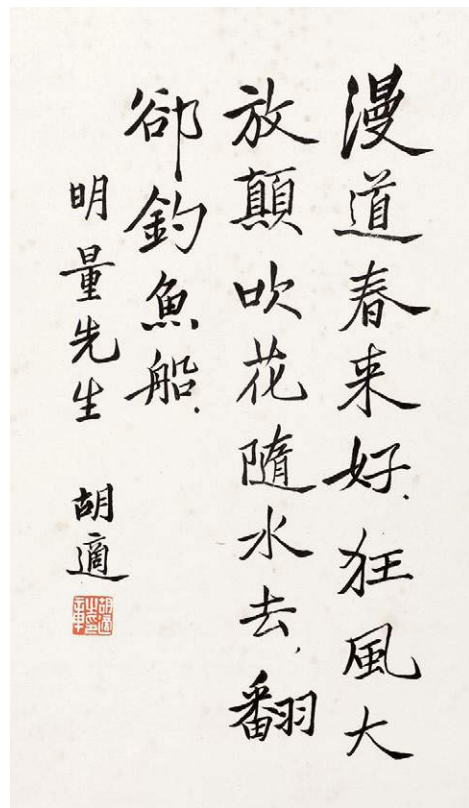 漫道春来好.狂風大
放顛吹花隨水去,翻
郤釣魚船.
明量先生 胡適
胡適之印章